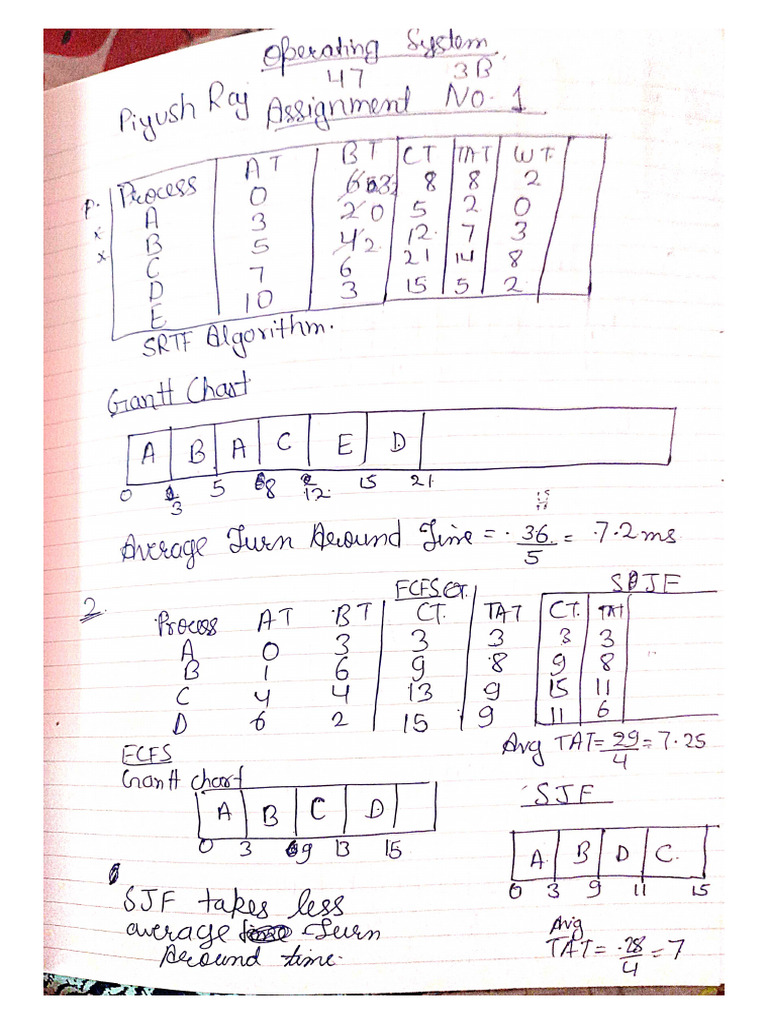 Operating System
47 3B
Piyush Raj Assignment No. 1
P. Process AT BT CT TAT WT
A 0 6 8 8 2
B 3 2 0 5 2 0
C 5 4 2 12 7 3
D 7 6 21 14 8
E 10 3 15 5 2
SRTF Algorithm.
Gantt Chart
A B A C E D
0 3 5 8 12 15 21
Average Turn Around Time = 36/5 = 7.2 ms
2.
FCFS SJF
Process AT BT CT. TAT CT. TAT
A 0 3 3 3 3 3
B 1 6 9 8 9 8
C 4 4 13 9 15 11
D 6 2 15 9 11 6
Avg TAT = 29/4 = 7.25
FCFS
Gantt chart
A B C D
0 3 9 13 15
SJF
A B D C.
0 3 9 11 15
SJF takes less
average Turn
Around time.
Avg
TAT = 28/4 = 7